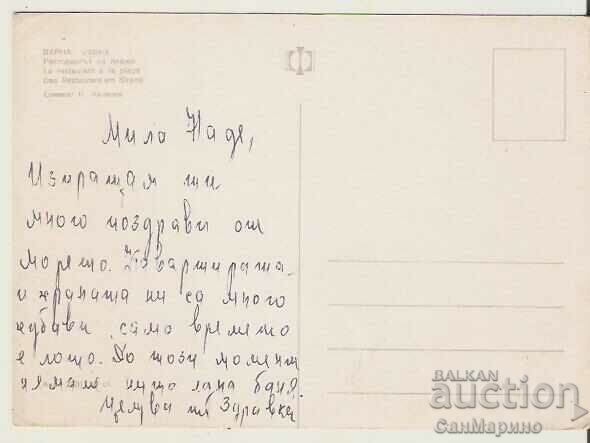 ВАРНА VARNA
Ресторантът на плажа
Le restaurant à la plage
Das Restaurant am Strand
Снимка:
Мила Наде,
Изпращам ти
много поздрави от
морето. Квартирата
и храната ни са много
хубави само времето
е лошо. До този момент
нямам нито една баня.
Целува те Здравка
BALKAN
auction
СанМарино